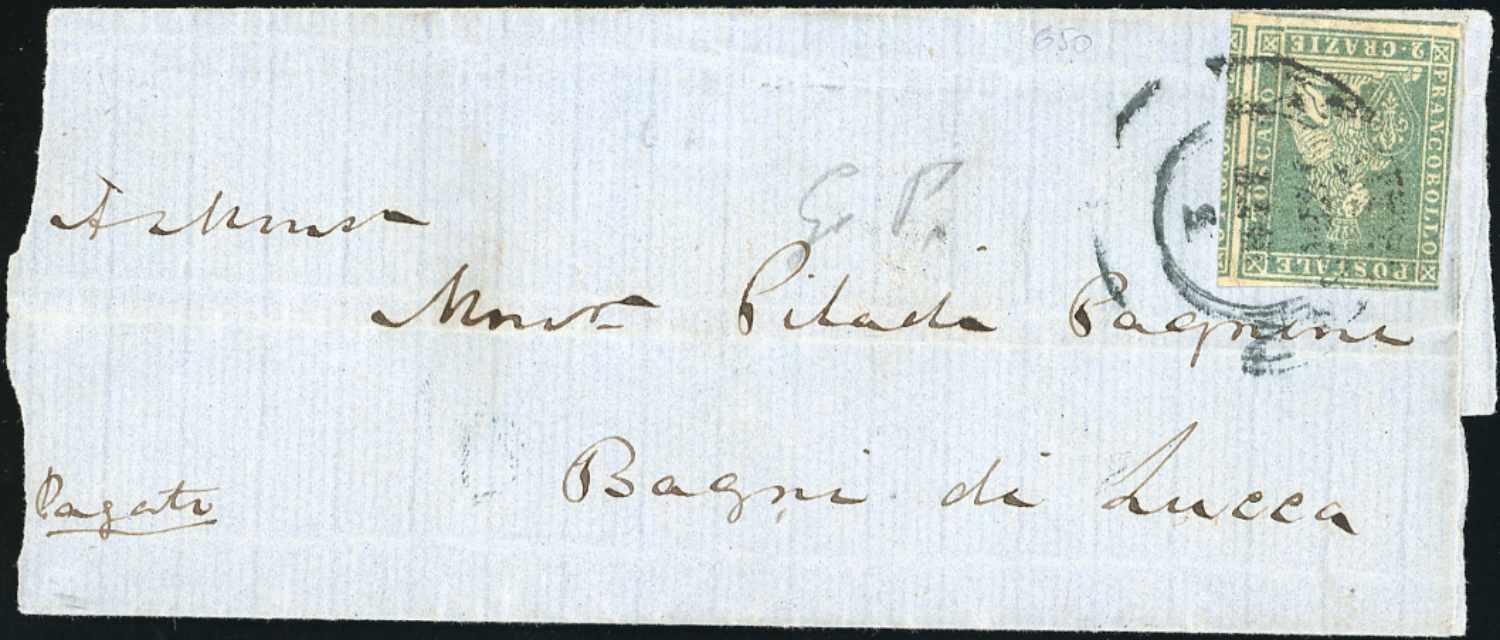 650
2·CRAZIE
FRANCOBOLLO
POSTALE
TOSCANO
G. P.
Pilade Pagnini
Bagni di Lucca
Pagato